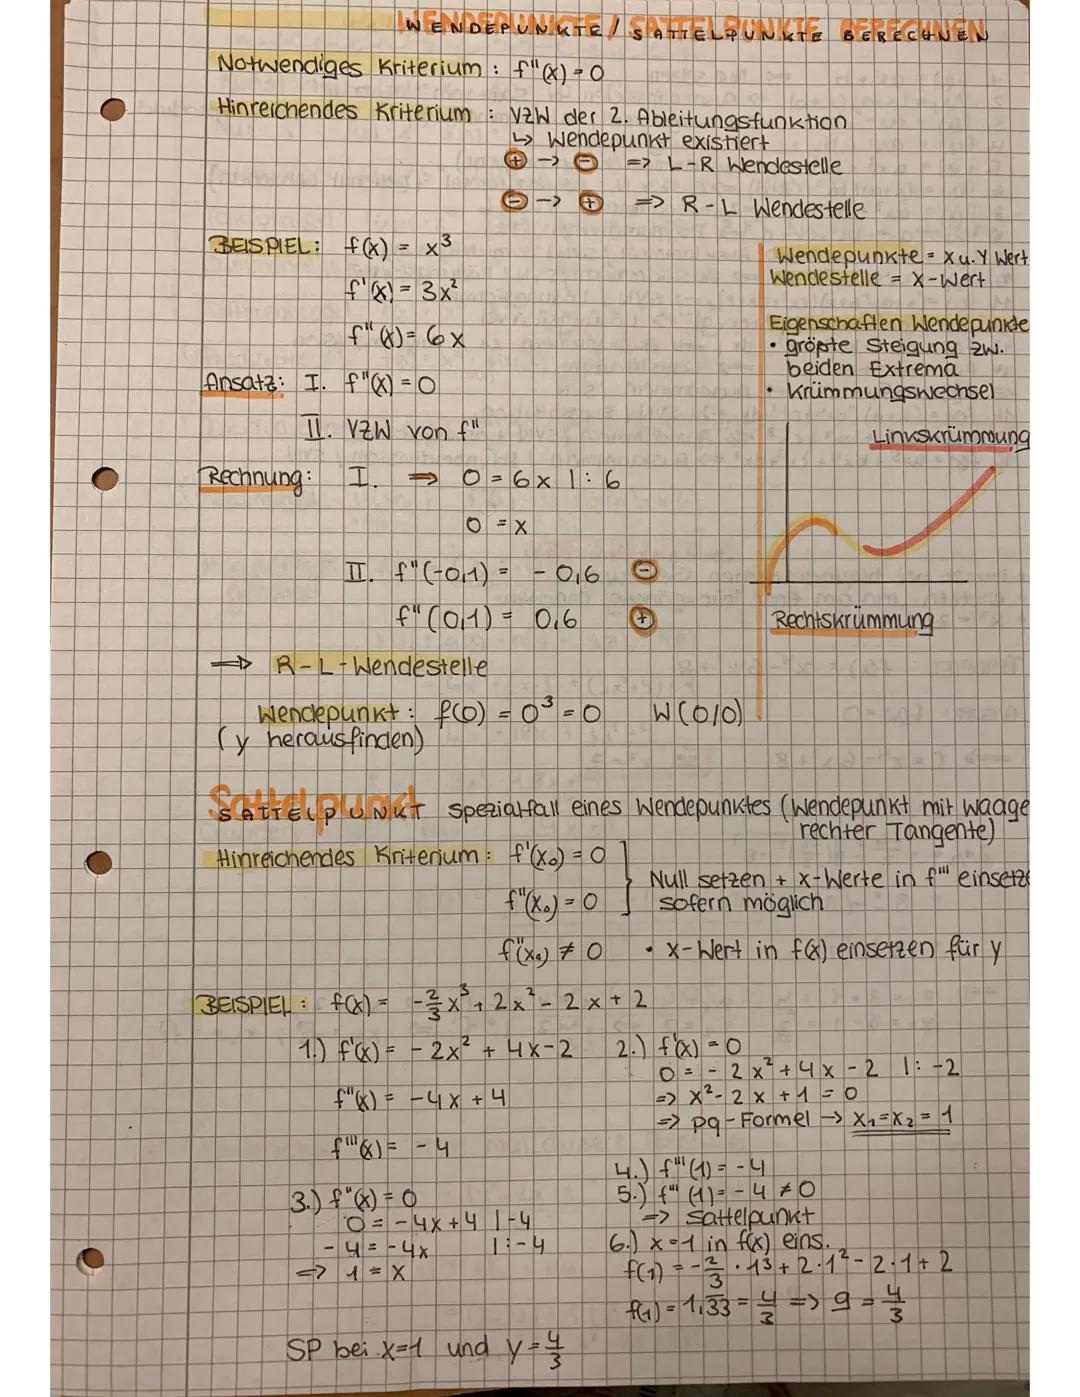 WENDEPUNKTE / SATTELPUNKTE BERECHNEN
Notwendiges Kriterium : f''(x) = 0
Hinreichendes Kriterium : VZW der 2. Ableitungsfunktion
↳ Wendepunkt existiert
⊕ -> ⊖ => L-R Wendestelle
⊖ -> ⊕ => R-L Wendestelle
BEISPIEL: f(x) = x³
f'(x) = 3x²
f''(x) = 6x
Ansatz: I. f''(x) = 0
II. VZW von f''
Rechnung: I. => 0 = 6x |: 6
0 = x
II. f''(-0,1) = - 0,6 ⊖
f''(0,1) = 0,6 ⊕
=> R-L-Wendestelle
Wendepunkt: f(0) = 0³ = 0 W(0/0)
(y herausfinden)
Wendepunkte = x u. Y Wert
Wendestelle = x-Wert
Eigenschaften Wendepunkte
• größte Steigung zw.
beiden Extrema
• Krümmungswechsel
Linkskrümmung
Rechtskrümmung
Sattelpunkt
SATTELPUNKT Spezialfall eines Wendepunktes (Wendepunkt mit waage
rechter Tangente)
Hinreichendes Kriterium: f'(x₀) = 0
f''(x₀) = 0
Null setzen + x-Werte in f''' einsetze
sofern möglich
f''(x₀) ≠ 0 • x-Wert in f(x) einsetzen für y
BEISPIEL: f(x) = -2/3 x³ + 2x² - 2x + 2
1.) f'(x) = - 2x² + 4x - 2
f''(x) = -4x + 4
f'''(x) = - 4
2.) f'(x) = 0
0 = - 2x² + 4x - 2 |: -2
=> x² - 2x + 1 = 0
=> pq-Formel -> x₁=x₂ = 1
3.) f''(x) = 0
0 = -4x + 4 |-4
- 4 = -4x |: -4
=> 1 = x
4.) f'''(1) = -4
5.) f'''(1) = -4 ≠ 0
=> Sattelpunkt
6.) x=1 in f(x) eins.
f(1) = -2/3 · 1³ + 2·1² - 2·1 + 2
f(1) = 1,33 = 4/3 => y = 4/3
SP bei x=1 und y = 4/3